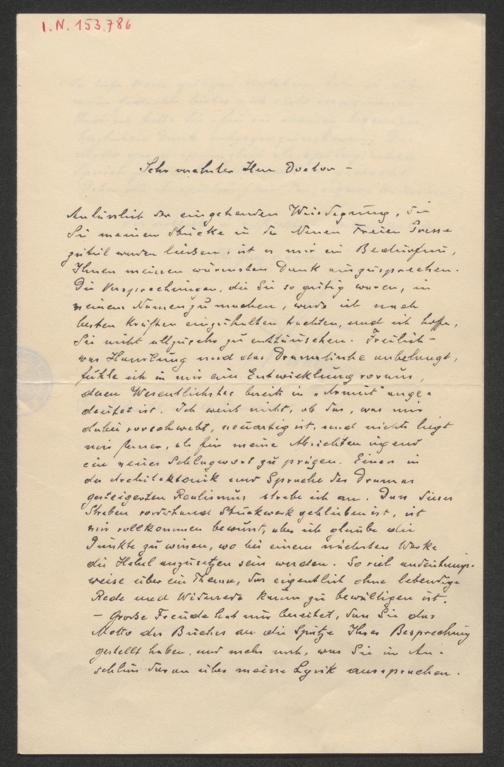 I.N. 153.786
Sehr verehrter Herr Doctor –
Anlässlich der eingehenden Würdigung, die
Sie meinem Stücke in der Neuen Freien Presse
zuteil werden liessen, ist es mir ein Bedürfnis,
Ihnen meinen wärmsten Dank auszusprechen.
Die Versprechungen, die Sie so gütig waren, in
meinem Namen zu machen, werde ich nach
besten Kräften einzuhalten trachten, und ich hoffe,
Sie nicht allzusehr zu enttäuschen. Freilich –
was Handlung und das Dramatische anbelangt,
fühle ich in mir eine Entwicklung voraus,
deren Wesentlichstes bereits in "Armut" ange-
deutet ist. Ich weiß nicht, ob das, was mir
dabei vorschwebt, neuartig ist, und nichts liegt
mir ferner, als für meine Absichten irgend
ein neues Schlagwort zu prägen. Einen in
der Architektonik und Sprache des Dramas
gesteigerten Realismus strebe ich an. Dass dieses
Streben vorderhand Stückwerk geblieben ist, ist
mir vollkommen bewusst, aber ich glaube die
Punkte zu wissen, wo bei einem nächsten Werke
die Hebel anzusetzen sein werden. So viel andeutungs-
weise über ein Thema, das eigentlich ohne lebendige
Rede und Widerrede kaum zu bewältigen ist.
– Große Freude hat mir bereitet, dass Sie das
Motto des Buches an die Spitze Ihrer Besprechung
gestellt haben, und mehr noch, was Sie im An-
schluss daran über meine Lyrik aussprachen.